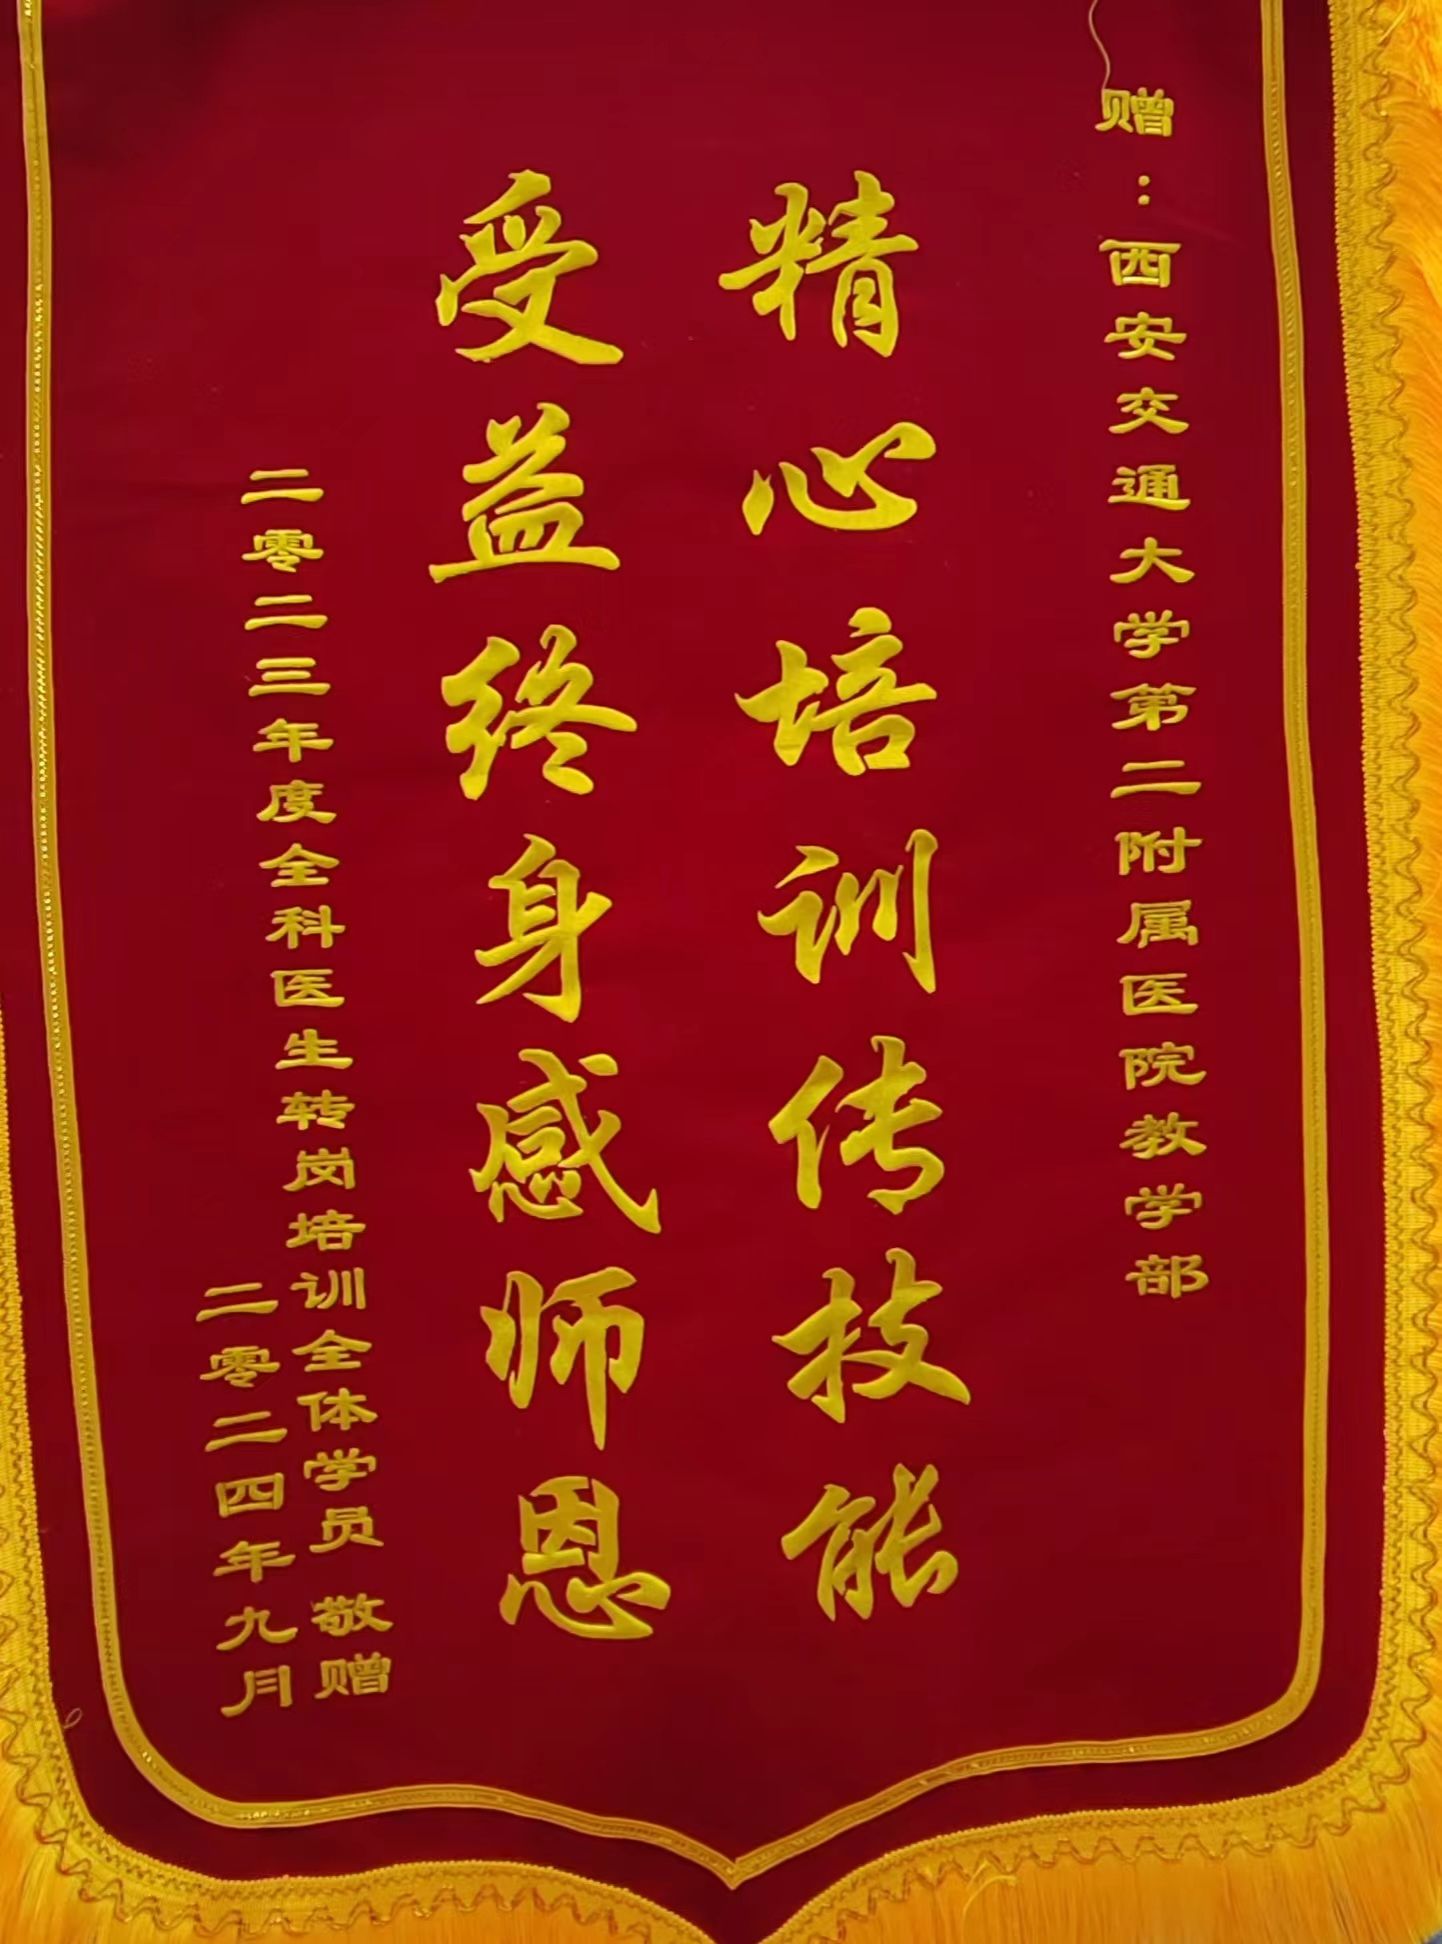 赠：西安交通大学第二附属医院教学部
精心培训传技能
受益终身感师恩
二零二三年度全科医生转岗培训全体学员 敬赠
二零二四年九月